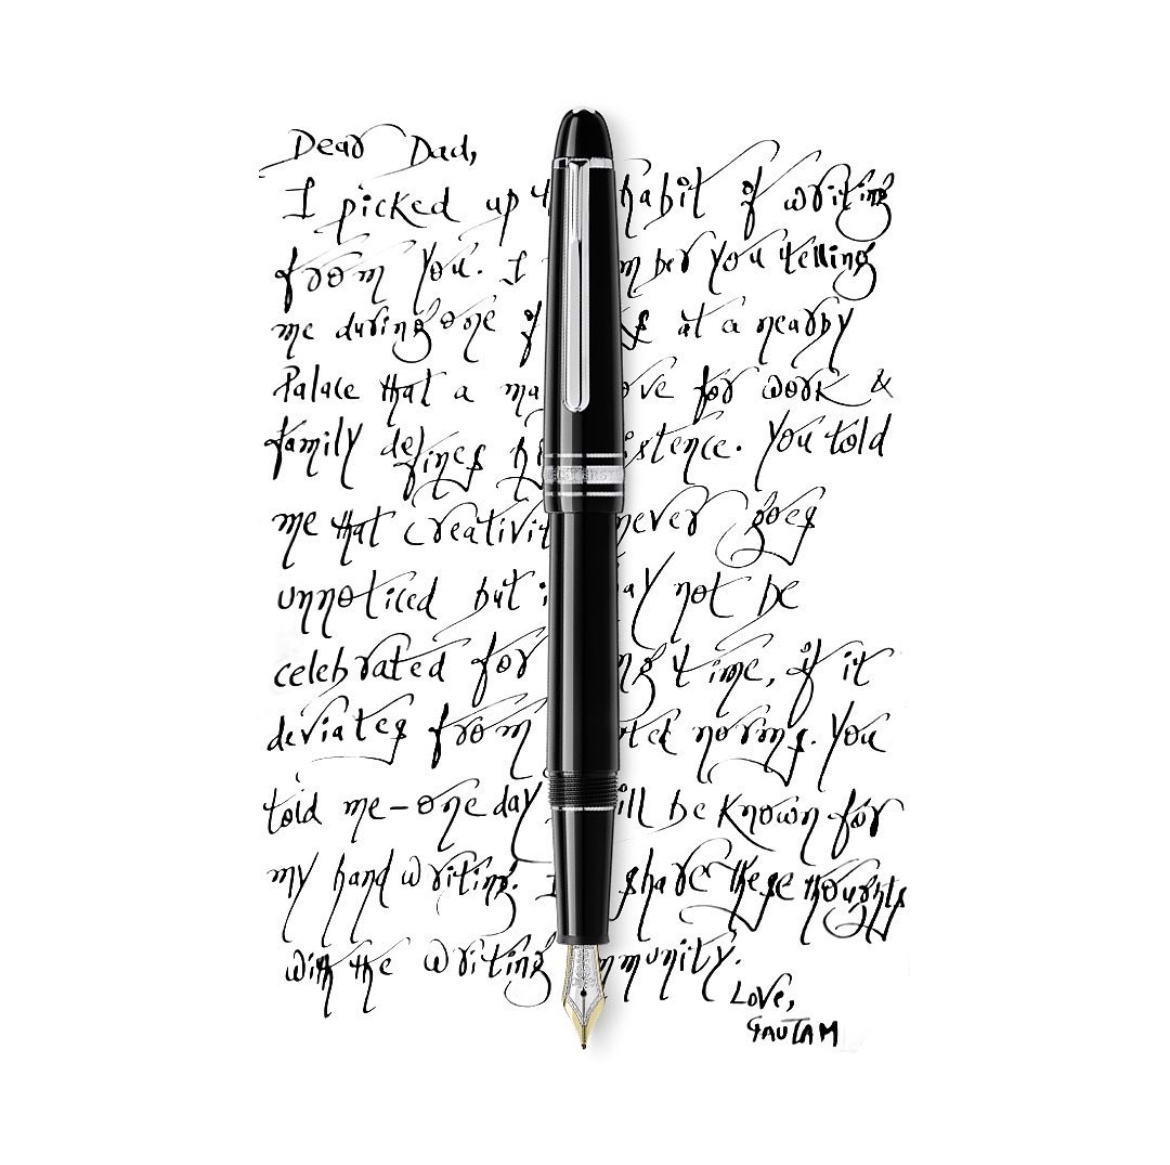 Dear Dad,
I picked up t habit of writing
from you. I m ber you telling
me during one of s at a nearby
Palace that a ma ove for work &
family defines h istence. You told
me that creativit never goes
unnoticed but i ay not be
celebrated for ng time, if it
deviates from ted norms. You
told me - one day ill be known for
my handwriting. I share these thoughts
with the writing mmunity.
Love,
GAUTAM